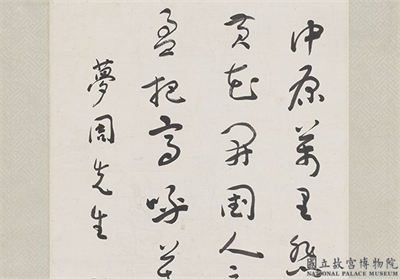 中原萬里
黃花開國人
盈把高
夢周先生
國立故宮博物院
NATIONAL PALACE MUSEUM